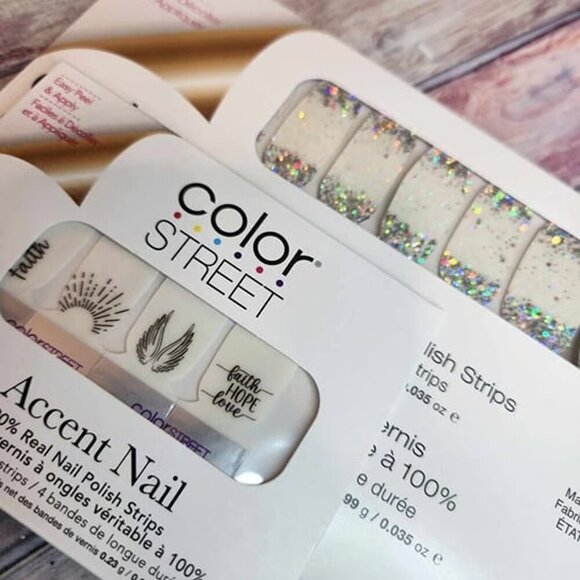 Easy Peel
& Apply
Faciles à Décoller
et à Appliquer
color
STREET
faith
faith
HOPE
love
COLORSTREET
colorSTREET
Accent Nail
100% Real Nail Polish Strips
vernis à ongles véritable à 100%
strips / 4 bandes de longue durée
net des bandes de vernis 0.23 g /
lish Strips
trips
.035 oz e
ernis
e à 100%
e durée
99 g / 0.035 oz e
Ma
Fabri
ÉTAT